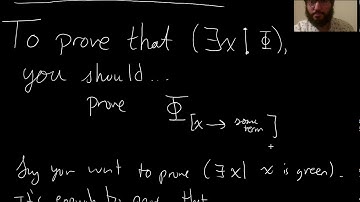 To prove that (∃x | Φ),
you should...
prove Φ [x → some term]
Say you want to prove (∃x | x is green).
It's enough to prove that